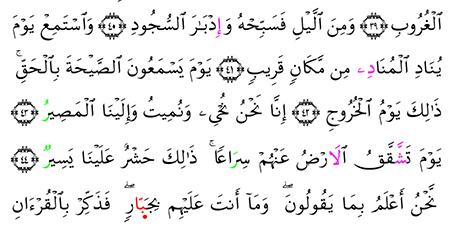 ٱلْغُرُوبِ ۝٣٩ وَمِنَ ٱلَّيْلِ فَسَبِّحْهُ وَإِدْبَٰرَ ٱلسُّجُودِ ۝٤٠ وَٱسْتَمِعْ يَوْمَ
يُنَادِ ٱلْمُنَادِۦ مِن مَّكَانٍ قَرِيبٍ ۝٤١ يَوْمَ يَسْمَعُونَ ٱلصَّيْحَةَ بِٱلْحَقِّ ۚ
ذَٰلِكَ يَوْمُ ٱلْخُرُوجِ ۝٤٢ إِنَّا نَحْنُ نُحْىِۦ وَنُمِيتُ وَإِلَيْنَا ٱلْمَصِيرُ ۝٤٣
يَوْمَ تَشَّقَّقُ ٱلَارْضُ عَنْهُمْ سِرَاعًا ۚ ذَٰلِكَ حَشْرٌ عَلَيْنَا يَسِيرٌ ۝٤٤
نَّحْنُ أَعْلَمُ بِمَا يَقُولُونَ ۖ وَمَآ أَنتَ عَلَيْهِم بِجَبَّارٍ ۖ فَذَكِّرْ بِٱلْقُرْءَانِ